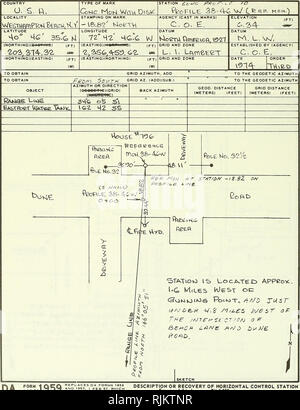 COUNTRY TYPE OF MARK STATION CONC PROFILE TO
U.S.A. CONC MON WITH DISK PROFILE 38-46 W (REF. MON)
LOCALITY STAMPING ON MARK AGENCY (CAST IN MARKS) ELEVATION (FT)
WESTHAMPTON BEACH, N.Y. 18.82' NORTH C.O.E. 6.34 (M)
LATITUDE LONGITUDE DATUM DATUM
40° 46' 35.6 N 72° 42' 46.6 W NORTH AMERICA, 1927 M.L.W.
(NORTHING)(EASTING) (FT) (EASTING)(NORTHING) (FT) GRID AND ZONE ESTABLISHED BY (AGENCY)
203,374.92 2,356,459.62 L.I. LAMBERT C.O.E.
(NORTHING)(EASTING) (FT) (EASTING)(NORTHING) (FT) GRID AND ZONE DATE ORDER
1974 THIRD
TO OBTAIN GRID AZIMUTH, ADD TO THE GEODETIC AZIMUTH
TO OBTAIN FROM SOUTH GRID AZ. (ADD)(SUB.) TO THE GEODETIC AZIMUTH
OBJECT AZIMUTH OR DIRECTION (GEODETIC)(GRID) BACK AZIMUTH GEOD. DISTANCE (METERS) (FEET) GRID DISTANCE (METERS) (FEET)
RANGE LINE 346 05 51
EASTPORT WATER TANK 162 42 55
HOUSE #796
PARKING AREA
REFERENCE MON. 38-46 W
DRIVEWAY
POLE NO. 92
POLE NO. 92½
PROFILE 38-46 W
0+00
DUNE ROAD
FIRE HYD.
PARKING AREA
DRIVEWAY
RANGE LINE
PROFILE LINE AZIMUTH
FROM NORTH 166°05'51"
STATION IS LOCATED APPROX.
1.6 MILES WEST OF
GUNNING POINT, AND JUST
UNDER 4.8 MILES WEST OF
THE INTERSECTION OF
BEACH LANE AND DUNE
ROAD.
SKETCH
DA FORM 1959 DESCRIPTION OR RECOVERY OF HORIZONTAL CONTROL STATION